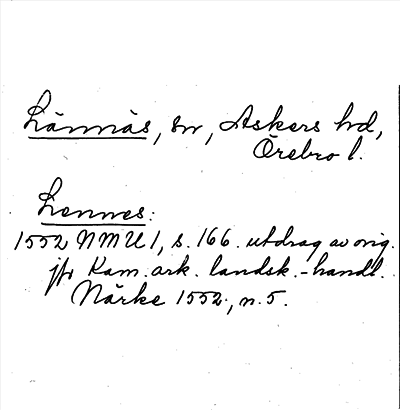 Lännäs, sn, Askers hd,
Örebro l.
Lennes:
1552 NMU 1, s. 166. utdrag av orig.
jfr Kam.ark. landsk.-handl.
Närke 1552, n. 5.